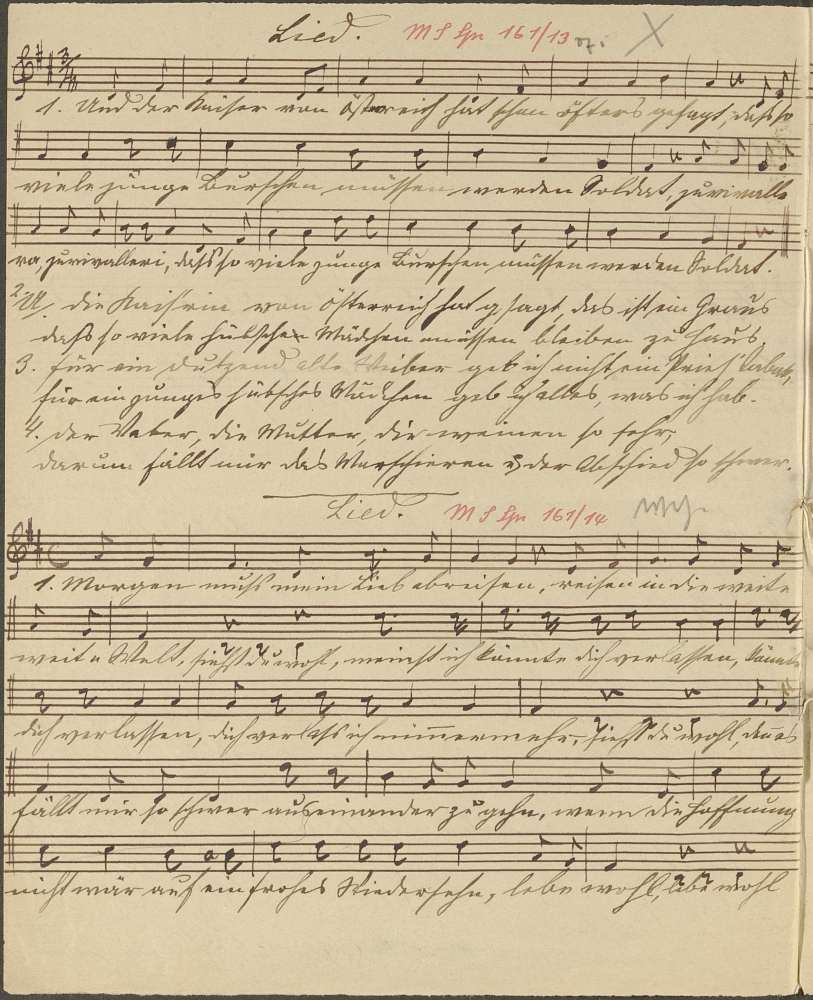 Lied. M S Gr 161/13
1. Und der Kaiser von Österreich hat schon öfters gesagt, dass so
viele junge Burschen müssen werden Soldat, juvivalle
ra, juvivalleri, dass so viele junge Burschen müssen werden Soldat.
2. U. die Kaisrin von Österreich hat gsagt, das ist ein Graus
dass so viele hübsche Mädchen müssen bleiben zu Haus,
3. Für ein Dutzend alte Weiber geb ich nicht ein Pries Tabak,
für ein junges hübsches Mädchen geb ich alles, was ich hab.
4. Der Vater, die Mutter, die weinen so sehr,
darum fällt mir das Marschieren u. der Abschied so schwer.
Lied. M S Gr 161/14
1. Morgen muss mein Lieb abreisen, reisen in die weite
weite Welt, siehst du wohl, meinst ich könnte dich verlassen, könnte
dich verlassen, dich verlass ich nimmermehr, siehst du wohl, denn es
fällt mir so schwer auseinander zu gehn, wenn die Hoffnung
nicht wär auf ein frohes Wiedersehn, lebe wohl, lebe wohl